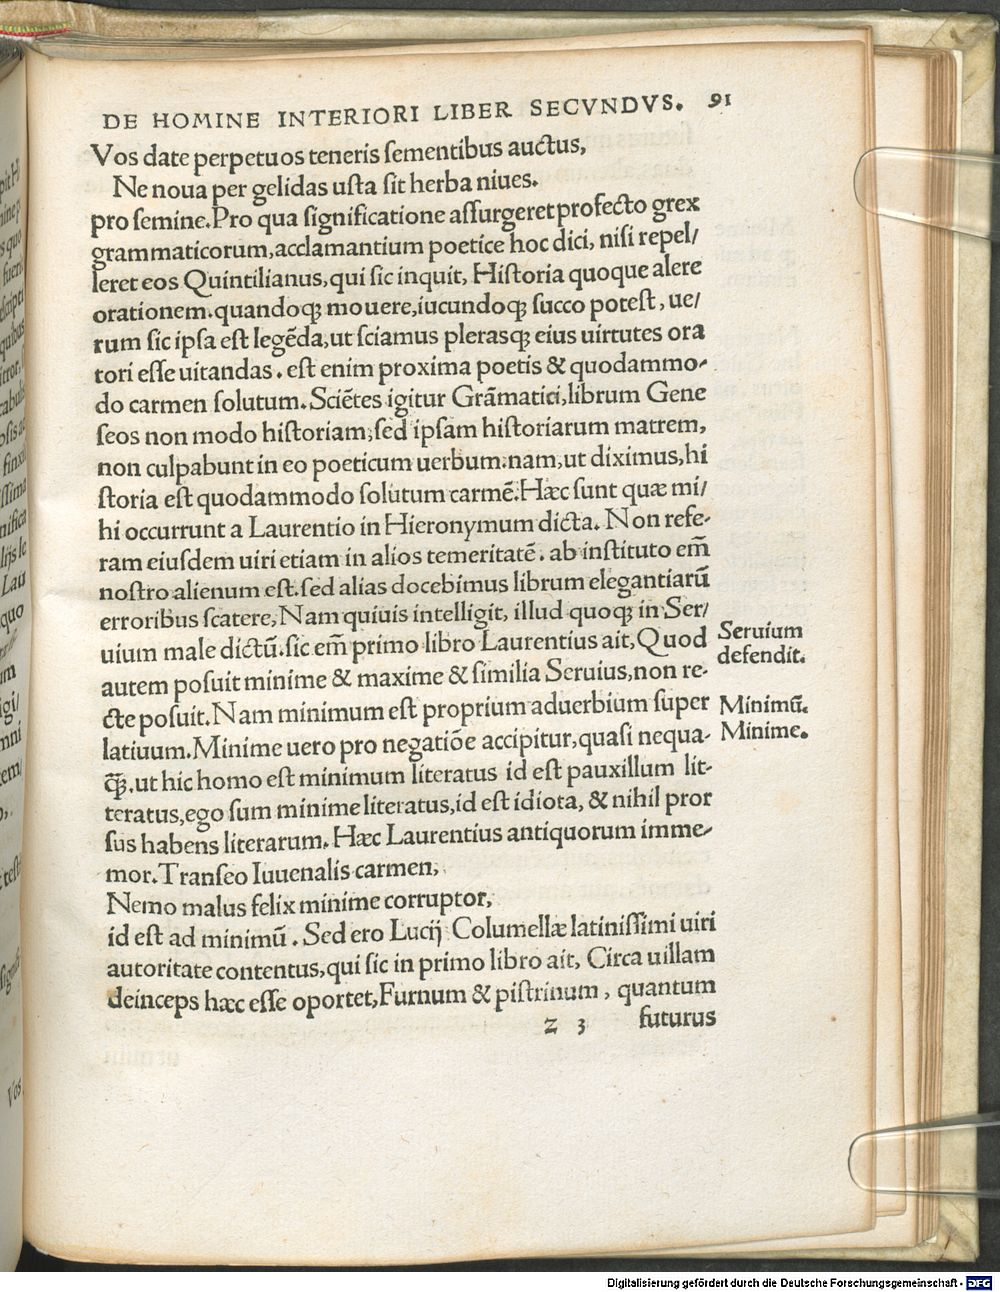 DE HOMINE INTERIORI LIBER SECVNDVS. 91
Vos date perpetuos teneris ſementibus auctus,
Ne noua per gelidas uſta ſit herba niues.
pro ſemine. Pro qua ſignificatione aſſurgeret profecto grex
grammaticorum, acclamantium poetice hoc dici, niſi repel/
leret eos Quintilianus, qui ſic inquit, Hiſtoria quoque alere
orationem. quandoqꝫ mouere, iucundoqꝫ ſucco poteſt, ue/
rum ſic ipſa eſt legẽda, ut ſciamus plerasqꝫ eius uirtutes ora
tori eſſe uitandas. eſt enim proxima poetis & quodammo-
do carmen ſolutum. Sciẽtes igitur Grãmatici, librum Gene
ſeos non modo hiſtoriam, ſed ipſam hiſtoriarum matrem,
non culpabunt in eo poeticum uerbum. nam, ut diximus, hi
ſtoria eſt quodammodo ſolutum carmẽ. Hæc ſunt quæ mi/
hi occurrunt a Laurentio in Hieronymum dicta. Non refe-
ram eiuſdem uiri etiam in alios temeritatẽ. ab inſtituto em̃
noſtro alienum eſt. ſed alias docebimus librum elegantiarũ
erroribus ſcatere, Nam quiuis intelligit, illud quoqꝫ in Ser/
uium male dictũ. ſic em̃ primo libro Laurentius ait, Quod
autem poſuit minime & maxime & ſimilia Seruius, non re-
cte poſuit. Nam minimum eſt proprium aduerbium ſuper
latiuum. Minime uero pro negatiõe accipitur, quaſi nequa-
q̃ꝫ. ut hic homo eſt minimum literatus id eſt pauxillum lit-
teratus, ego ſum minime literatus, id eſt idiota, & nihil pror
ſus habens literarum. Hæc Laurentius antiquorum imme-
mor. Tranſeo Iuuenalis carmen,
Nemo malus felix minime corruptor,
id eſt ad minimũ. Sed ero Lucij Columellæ latiniſſimi uiri
autoritate contentus, qui ſic in primo libro ait, Circa uillam
deinceps hæc eſſe oportet, Furnum & piſtrinum, quantum
z 3 futurus
Seruium
defendit.
Minimũ.
Minime.
Digitalisierung gefördert durch die Deutsche Forschungsgemeinschaft - DFG